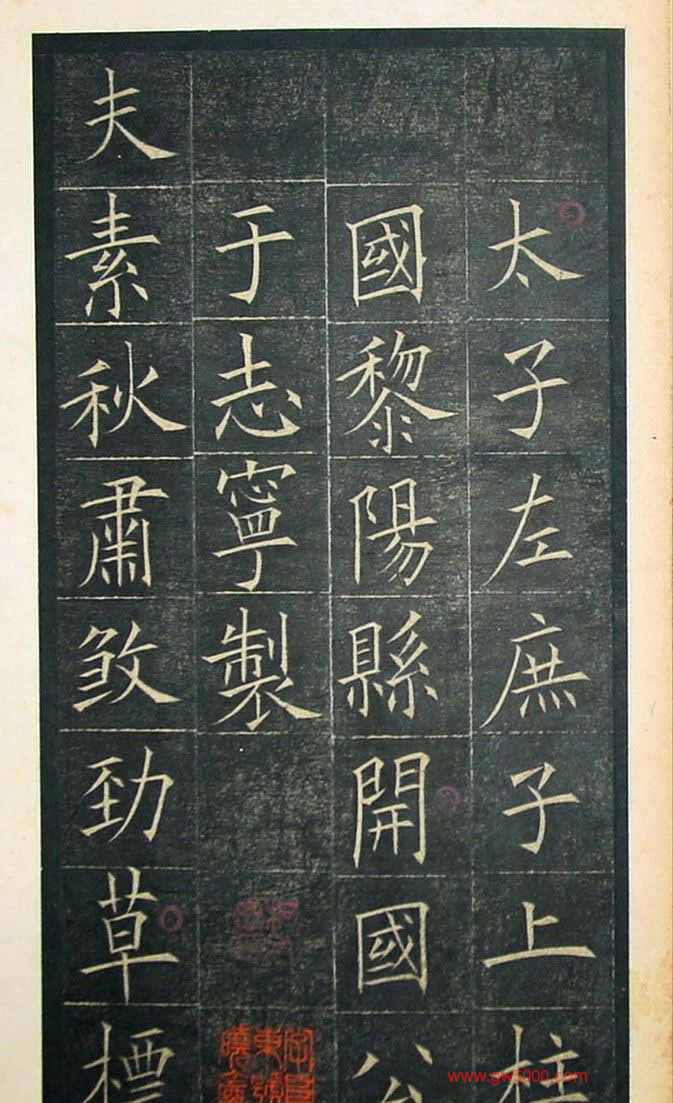 太子左庶子上柱
國黎陽縣開國公
于志寧製
夫素秋肅煞勁草標
www.gw5000.com